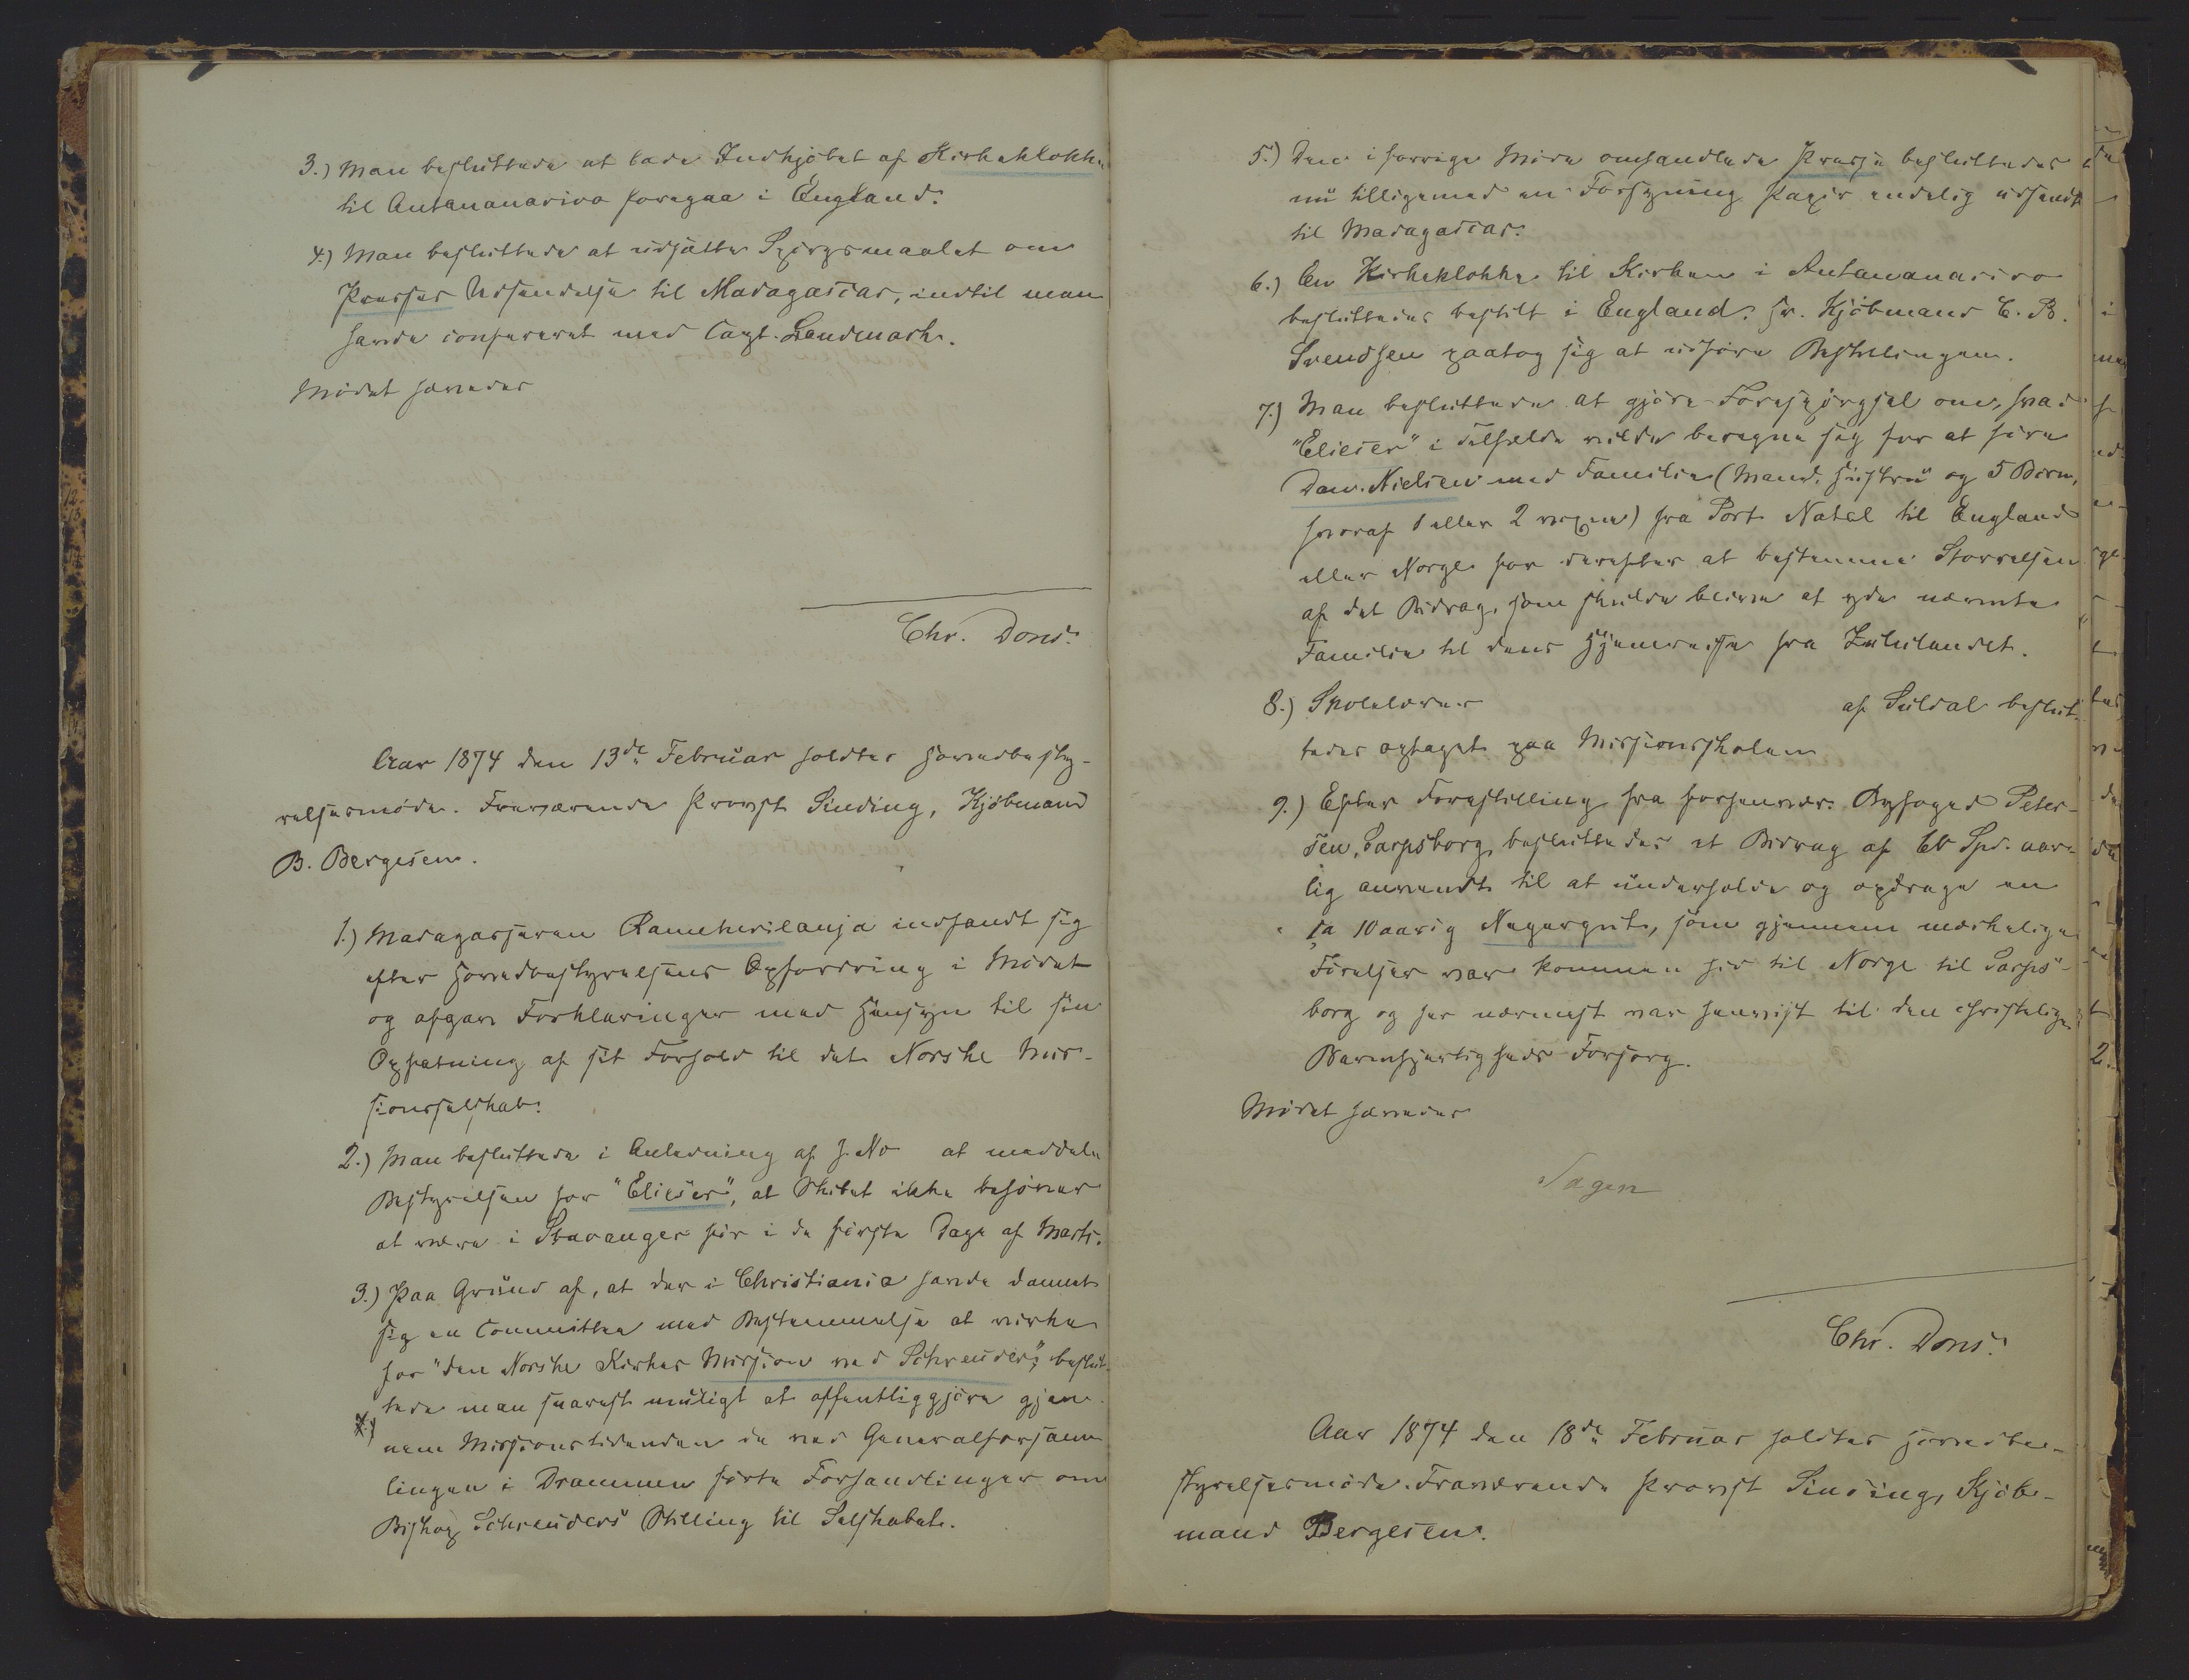 3.) Man besluttede at lade Indkjöbet af Kirkeklokke
til Antananarivo foregaa i England.
4.) Man besluttede at udsætte Spörgsmaalet om
Presses Udsendelse til Madagascar, indtil man
havde confereret med Capt. Landmark.
Mödet hævedes
Chr. Dons.
Aar 1874 den 13de Februar holdtes Hovedbesty-
relsesmöde. Fraværende Provst Sinding, Kjöbmand
B. Bergesen.
1.) Madagasseren Rameherilanja indfandt sig
efter Hovedbestyrelsens Opfordring i Mödet
og afgav Forklaringer med Hensyn til sin
Opfatning af sit Forhold til det Norske Mis-
sionsselskab.
2.) Man besluttede i Anledning af J. No at meddele
Bestyrelsen for "Elieser", at Skibet ikke behöver
at være i Stavanger för i de förste Dage af Marts.
3.) Paa Grund af, at der i Christiania havde dannet
sig en Committee med Bestemmelse at virke
for "den Norske Kirkes Mission ved Schreuder", beslut-
tede man snarest muligt at offentliggjöre gjen-
4.) nem Missionstidenden de ved Generalforsam
lingen i Drammen förte Forhandlinger om
Biskop Schreuders Stilling til Selskabet.
5.) Den i forrige Möde omhandlede Presse besluttedes
nu tilligemed en Forsyning Papir endelig udsendt
til Madagascar.
6.) En Kirkeklokke til Kirken i Antananarivo
besluttedes bestilt i England. Hr. Kjöbmand C. B.
Svendsen paatog sig at udföre Bestillingen.
7.) Man besluttede at gjöre Forespörgsel om, hvad
"Elieser" i Tilfælde vilde beregne sig for at före
Dan. Nielsen med Familie (Mand, Hustru og 5 Börn,
hvoraf 1 eller 2 voxne) fra Port Natal til England
eller Norge for derefter at bestemme Störrelsen
af det Bidrag, som skulde blive at yde nævnte
Familie til dens Hjemreise fra Zululandet.
8.) Skolelærer af Suldal beslut-
tedes optaget paa Missionsskolen
9.) Efter Forestilling fra forhenvær. Byfoged Peter-
sen, Sarpsborg, besluttedes et Bidrag af 60 Spd. aar-
lig anvendt til at underholde og opdrage en
ca 10 aarig Negergut, som gjennem mærkelige
Förelser var kommen hid til Norge til Sarps-
borg og her nærmest var henvist til den christelige
Barmhjertigheds Forsorg.
Mödet hævedes
Sagen
Chr. Dons.
Aar 1874 den 18de Februar holdtes Hovedbe-
styrelsesmöde. Fraværende Provst Sinding, Kjöb-
mand Bergesen.